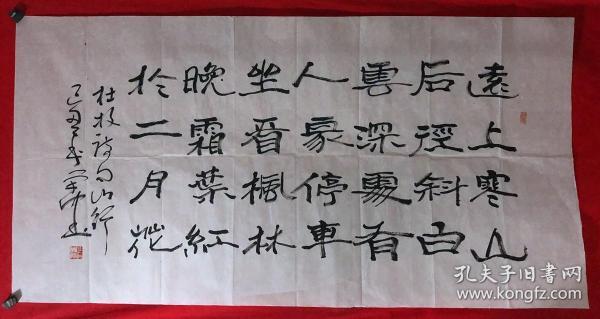 遠上寒山
后徑斜白
雲深處有
人家停車
坐看楓林
晚霜葉紅
於二月花
杜牧詩句山行
书
孔夫子旧书网
www.kongfz.com